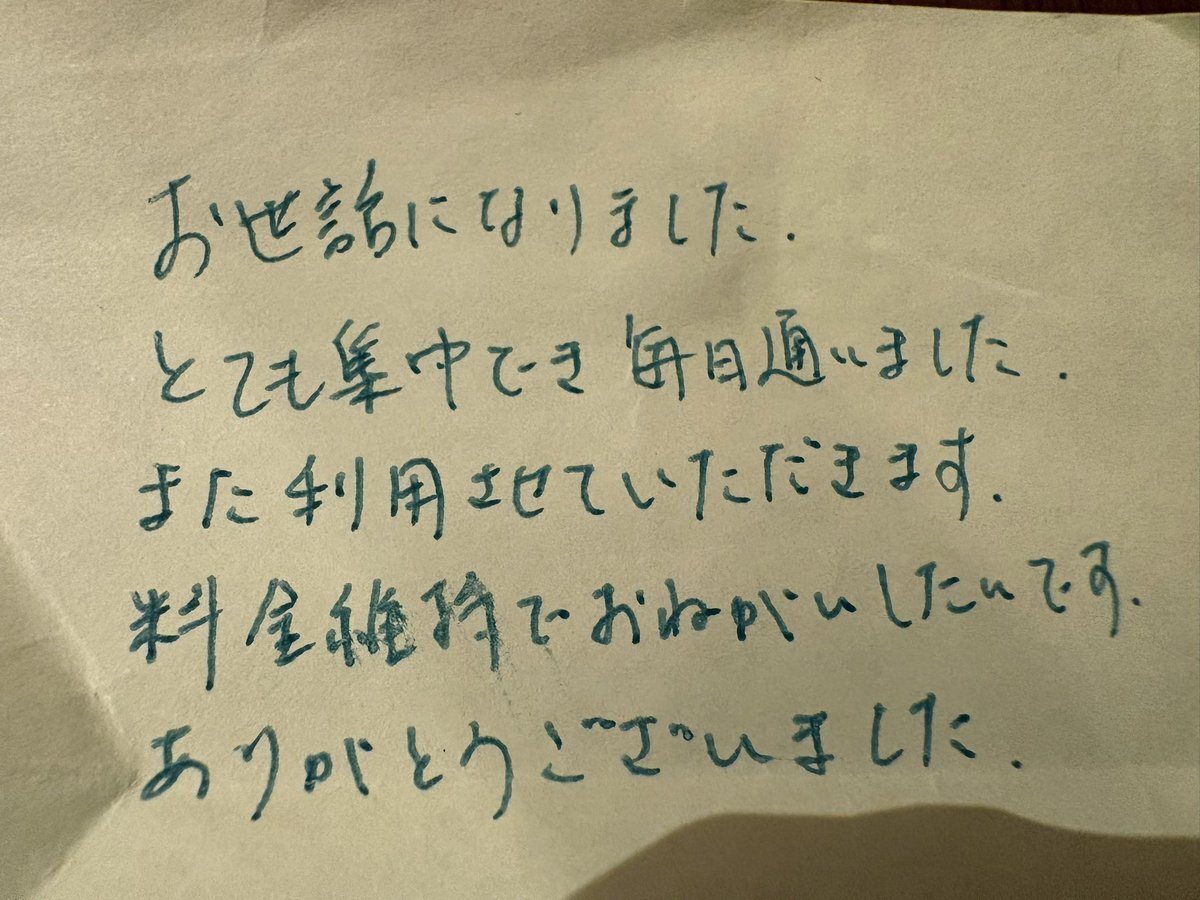 お世話になりました.
とても集中でき毎日通いました.
また利用させていただきます.
料金維持でおねがいしたいです.
ありがとうございました.